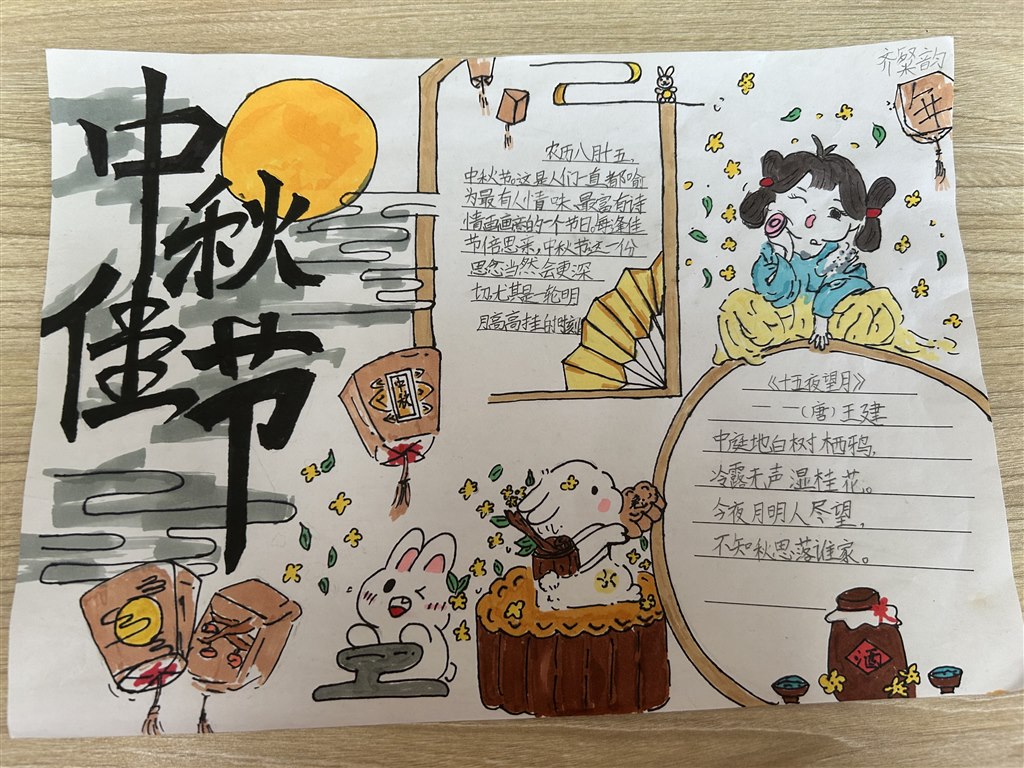 齐粲韵
年
中秋佳节
农历八月十五,
中秋节,这是人们一直都喻
为最有人情味、最富有诗
情画意的一个节日。每逢佳
节倍思亲,中秋节这一份
思念当然会更深
切,尤其是一轮明
月高高挂的时刻
中秋
《十五夜望月》
——(唐)王建
中庭地白树栖鸦,
冷露无声湿桂花。
今夜月明人尽望,
不知秋思落谁家。
酒